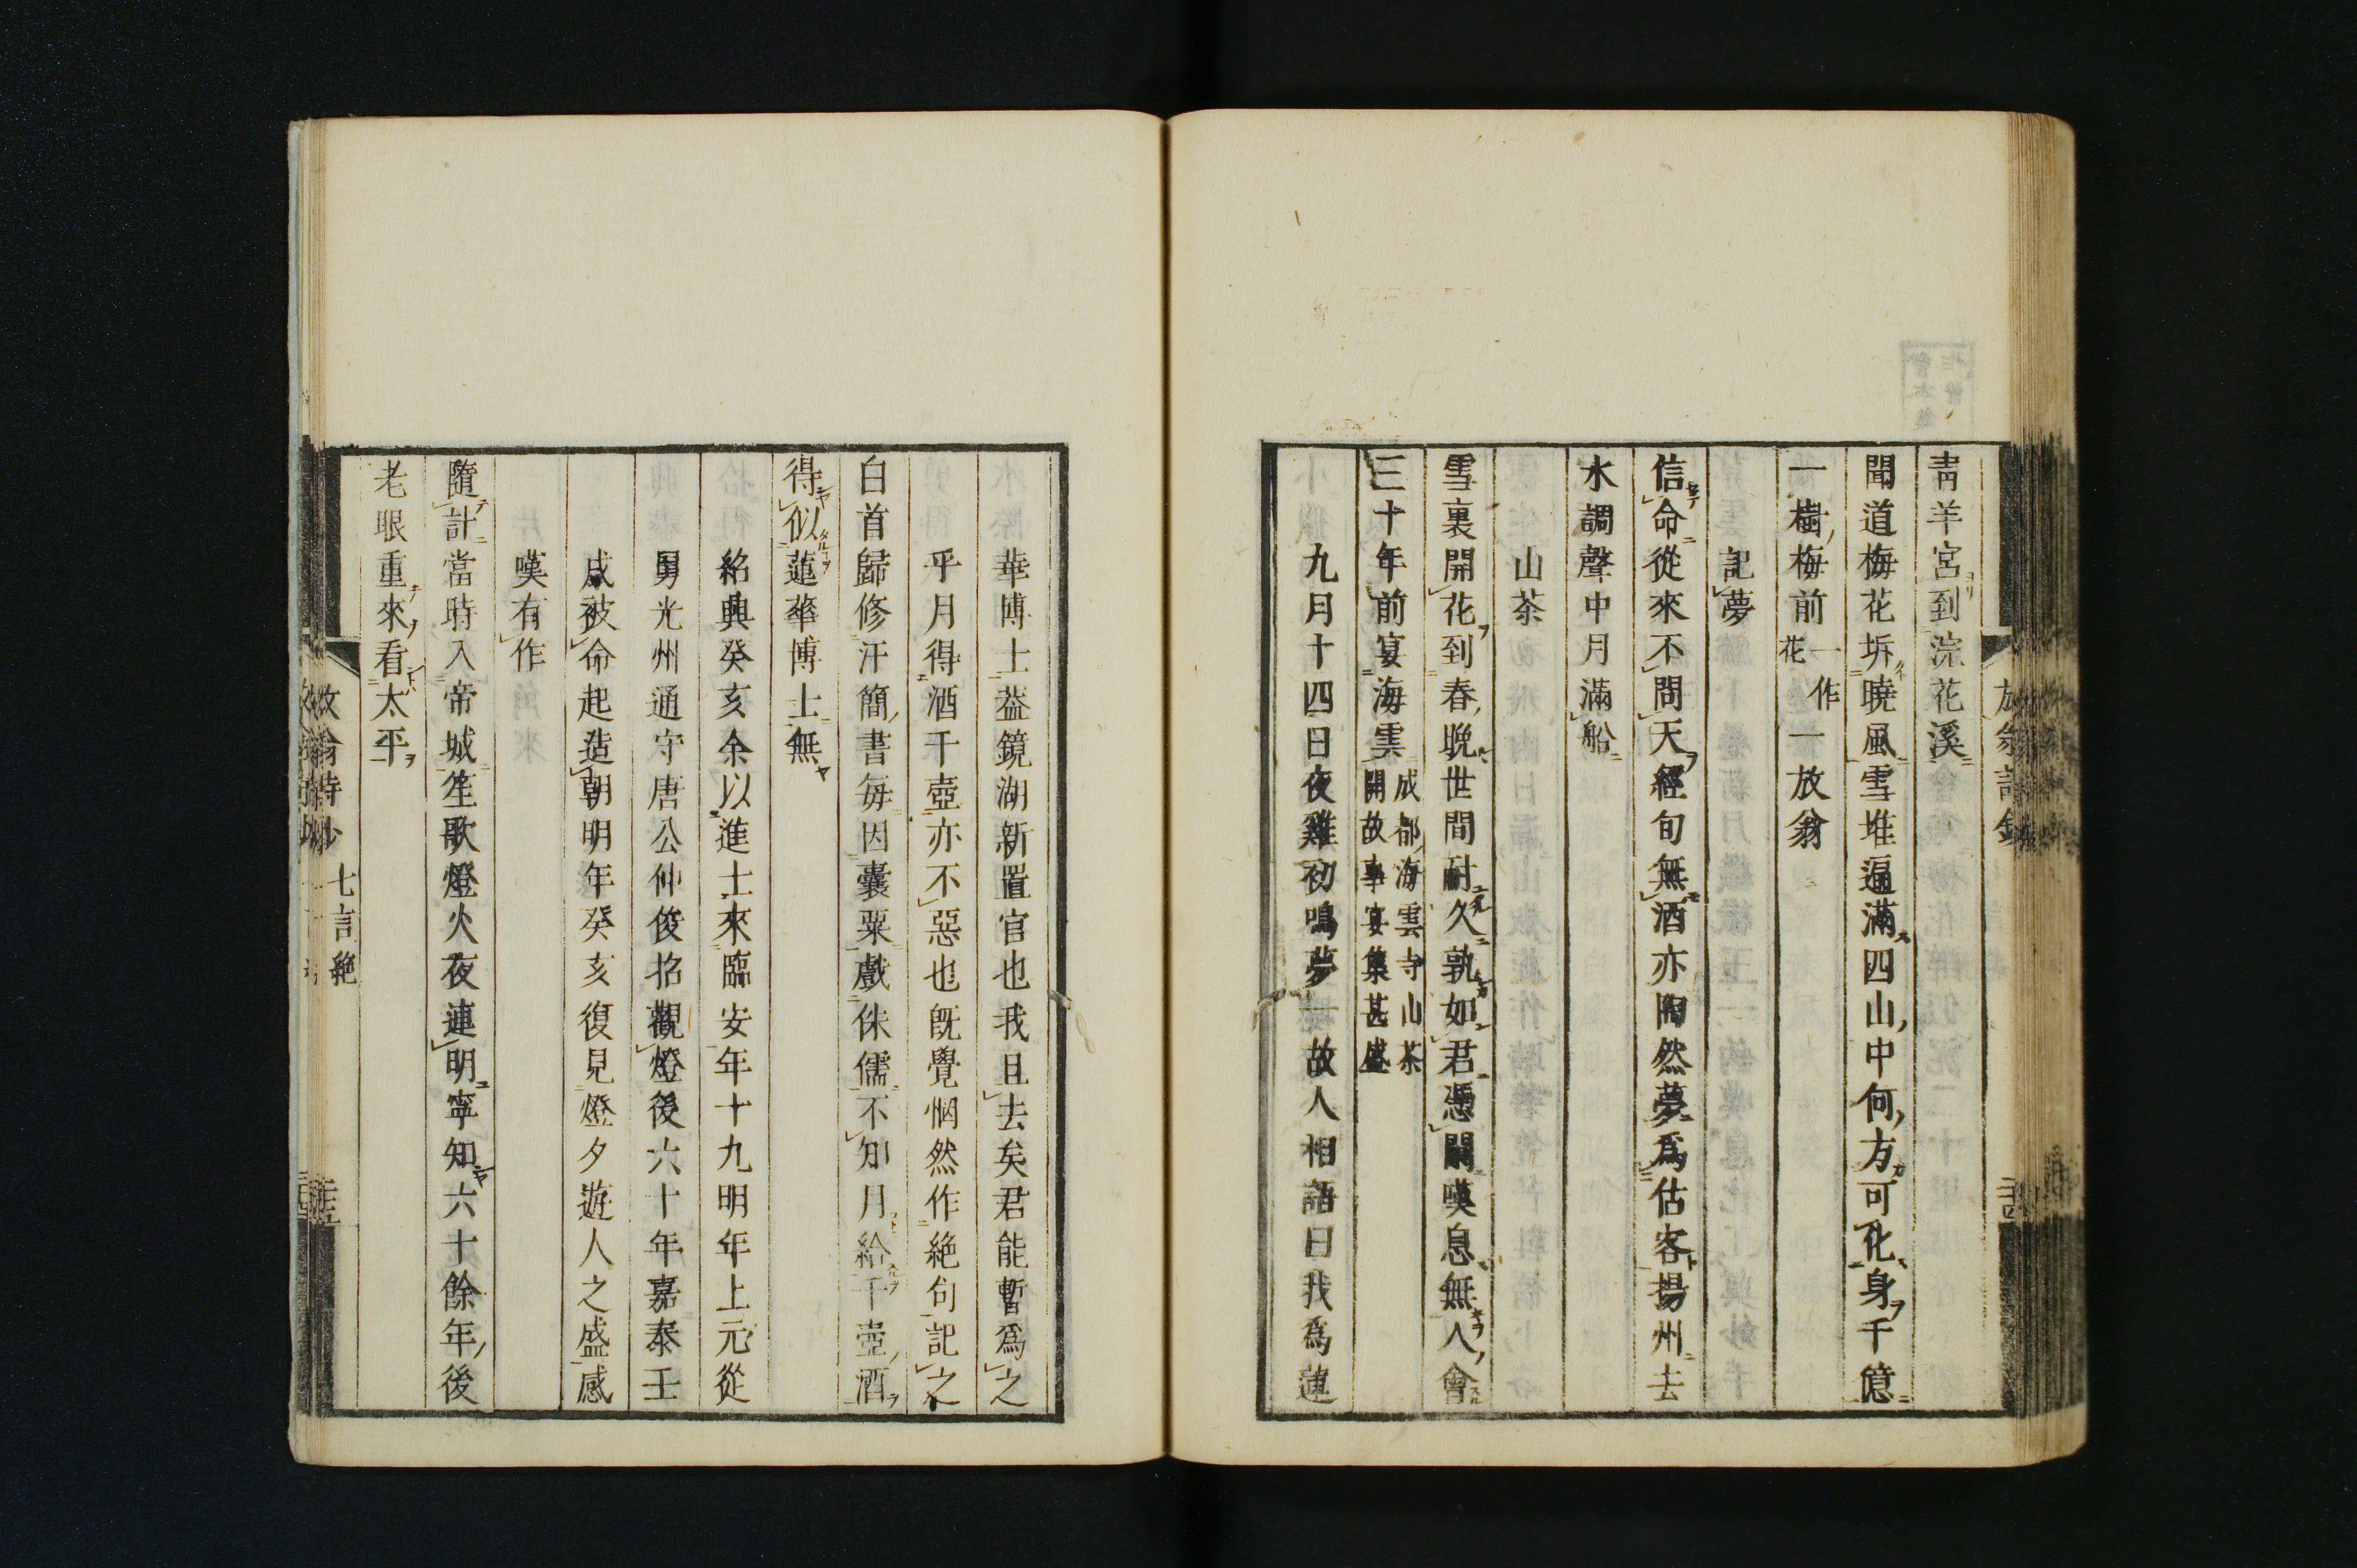 青羊宮到浣花溪
聞道梅花坼曉風雪堆遍滿四山中何方可化身千億
一樹梅前一作花一放翁
記夢
信命從來不問天經旬無酒亦陶然夢爲估客揚州去
水調聲中月滿船
山茶
雪裏開花到春晚世間耐久孰如君憑闌嘆息無人會
三十年前宴海雲成都海雲寺山茶開故事宴集甚盛
九月十四日夜雞初鳴夢一故人相語曰我爲蓮
華博士蓋鏡湖新置官也我且去矣君能暫爲之
乎月得酒千壺亦不惡也既覺惘然作絶句記之
白首歸修汗簡書每因囊粟戲侏儒不知月給千壺酒
得似蓮華博士無
紹興癸亥余以進士來臨安年十九明年上元從
舅光州通守唐公仲俊招觀燈後六十年嘉泰壬
戌被命起造朝明年癸亥復見燈夕遊人之盛感
嘆有作
隨計當時入帝城笙歌燈火夜連明寧知六十餘年後
老眼重來看太平
七言絶